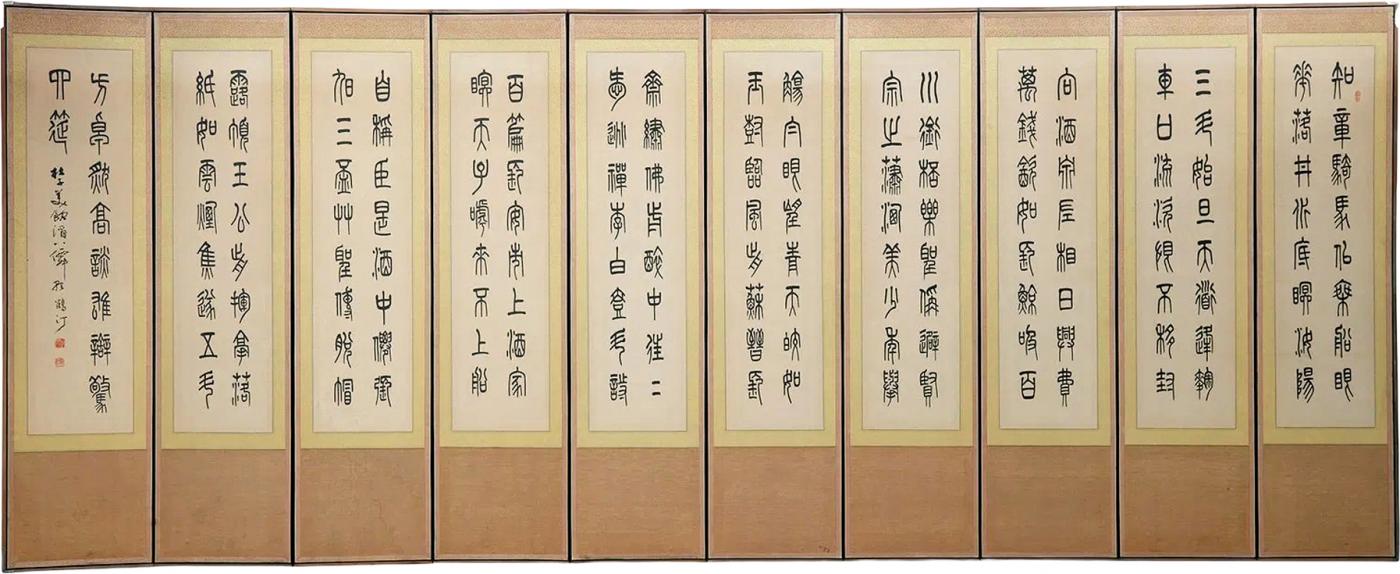 知章騎馬似乘船眼
花落井水底眠汝陽
三斗始旦天道逢麴
車口流涎恨不移封
向酒泉左相日興費
萬錢飲如長鯨吸百
川銜杯樂聖稱避賢
宗之瀟洒美少年舉
觴白眼望青天皎如
玉樹臨風前蘇晉長
齋繡佛前醉中往〻
愛逃禪李白壹斗詩
百篇長安市上酒家
眠天子嘑來不上船
自稱臣是酒中僊張
旭三杯艸聖傳脫帽
露頂王公前揮毫落
紙如雲煙焦遂五斗
方卓然高談雄辯驚
四筵
杜子美飲酒八僊 鶴汀